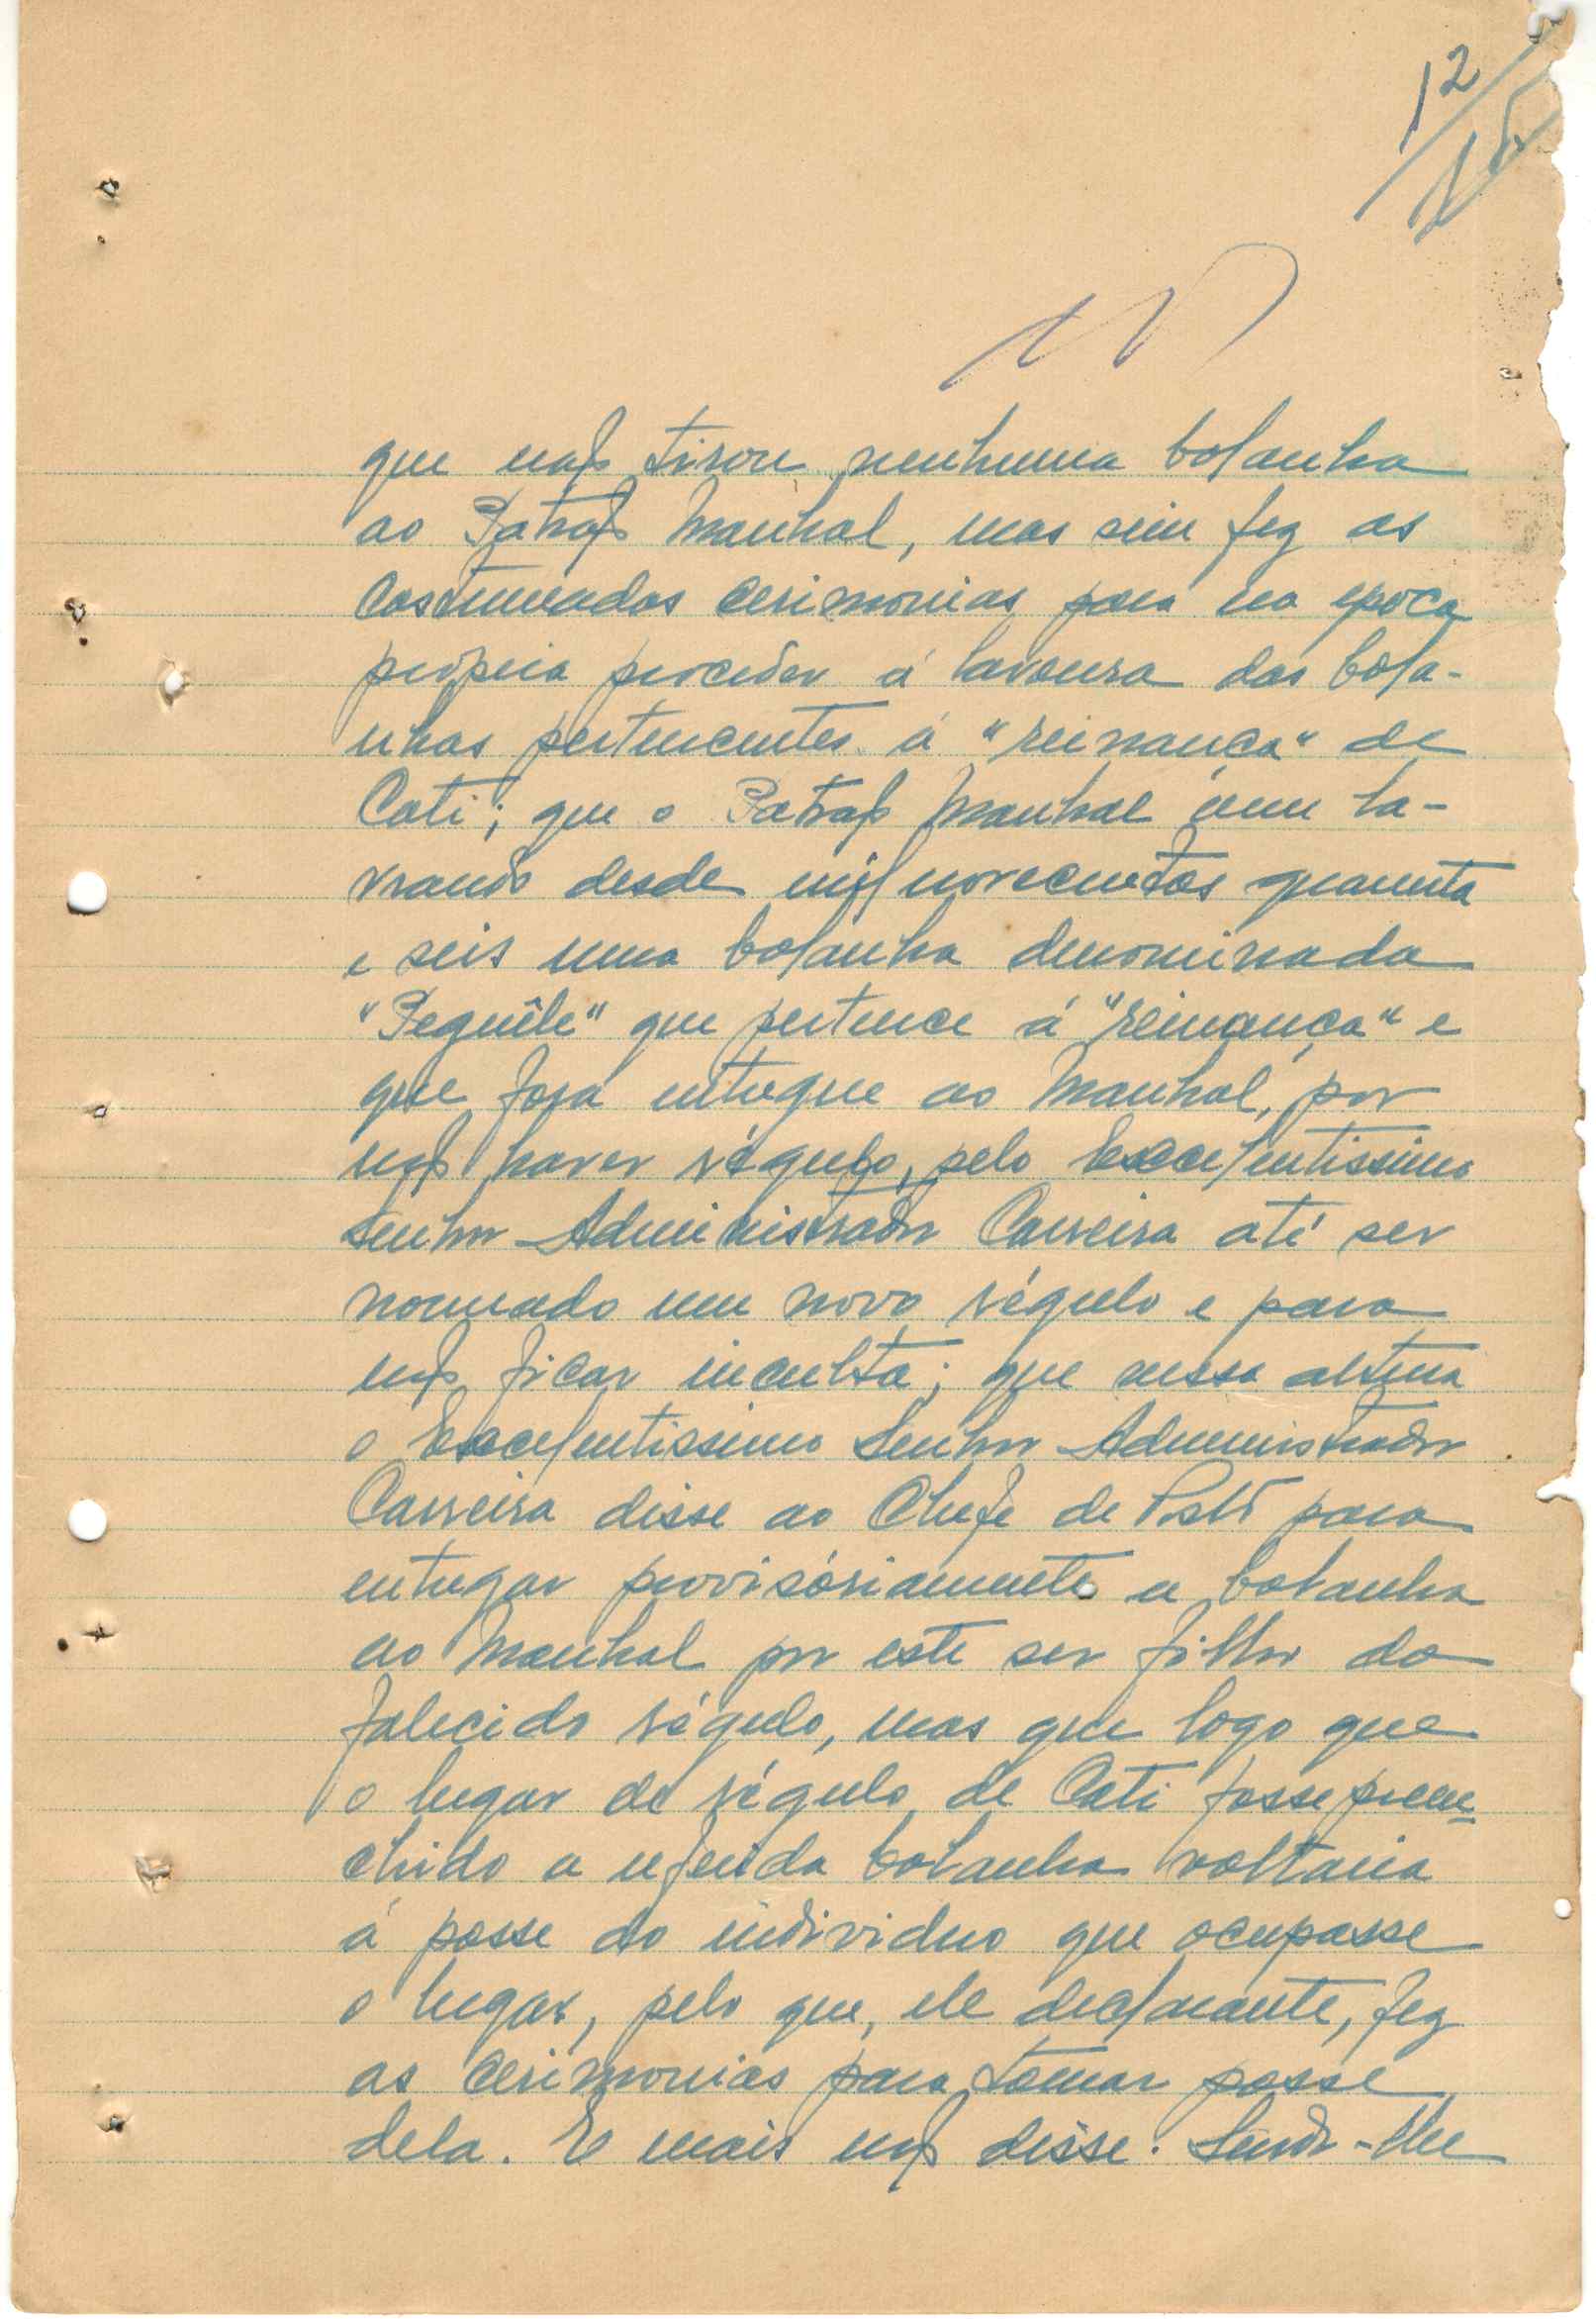 12
15
que não tirou nenhuma bolanha
ao Patrão Manhal, mas sim fez as
costumadas cerimonias para na epoca
própria proceder á lavoura das bola-
nhas pertencentes á "reinança" de
Cati; que o Patrão Manhal vem la-
vrando desde mil novecentos quarenta
e seis uma bolanha denominada
"Pequêle" que pertence á "reinança" e
que fora entregue ao Manhal, por
não haver régulo, pelo Excelentissimo
Senhor Administrador Carreira até ser
nomeado um novo régulo e para
não ficar inculta; que nessa altura
o Excelentissimo Senhor Administrador
Carreira disse ao Chefe de Posto para
entregar provisóriamente a bolanha
ao Manhal por este ser filho do
falecido régulo, mas que logo que
o lugar de régulo de Cati fosse preen-
chido a referida bolanha voltaria
á posse do individuo que ocupasse
o lugar, pelo que, ele declarante, fez
as cerimonias para tomar posse
dela. E mais não disse. Sendo-lhe